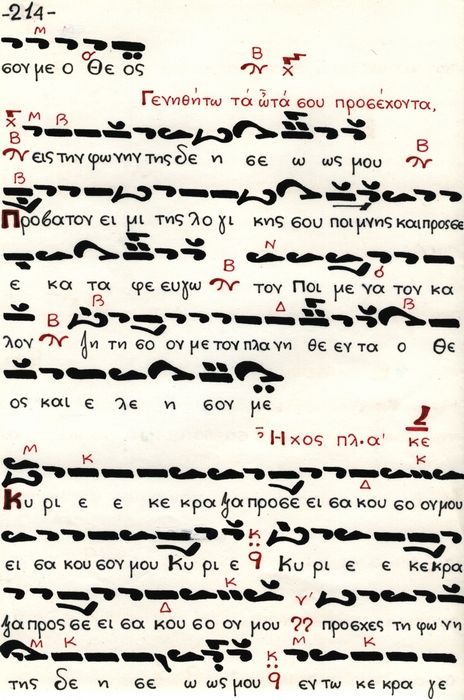 -214-
σον με ο Θε ος
Γενηθήτω τά ὦτά σου προσέχοντα,
εις την φω νην της δε η σε ω ως μου
Προβατον ει μι της λο γι κης σου ποι μνης και προσ σε
ε κα τα φε ευγω τον Ποι με να τον κα
λον ζη τη σο ον με τον πλα νη θε εν τα ο Θε
ος και ε λε η σον με
Ηχος πλ.α' κε
Κυ ρι ε ε κε κρα ξα προς σε ει σα κου σο ον μου
ει σα κου σον μου Κυ ρι ε Κυ ρι ε ε κε κρα
ξα προς σε ει σα κου σο ον μου προσχες τη φω νη
της δε η σε ω ως μου εν τω κε κρα γε